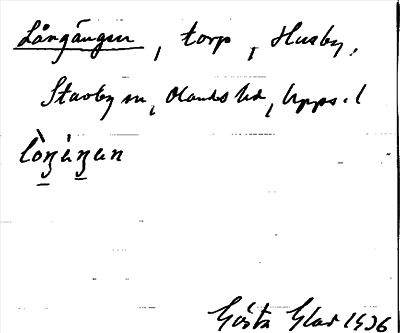 Långängen, torp, Husby,
Stavby sn, Olands hd, Upps. l
lòŋàŋan
Gösta Glad 1936